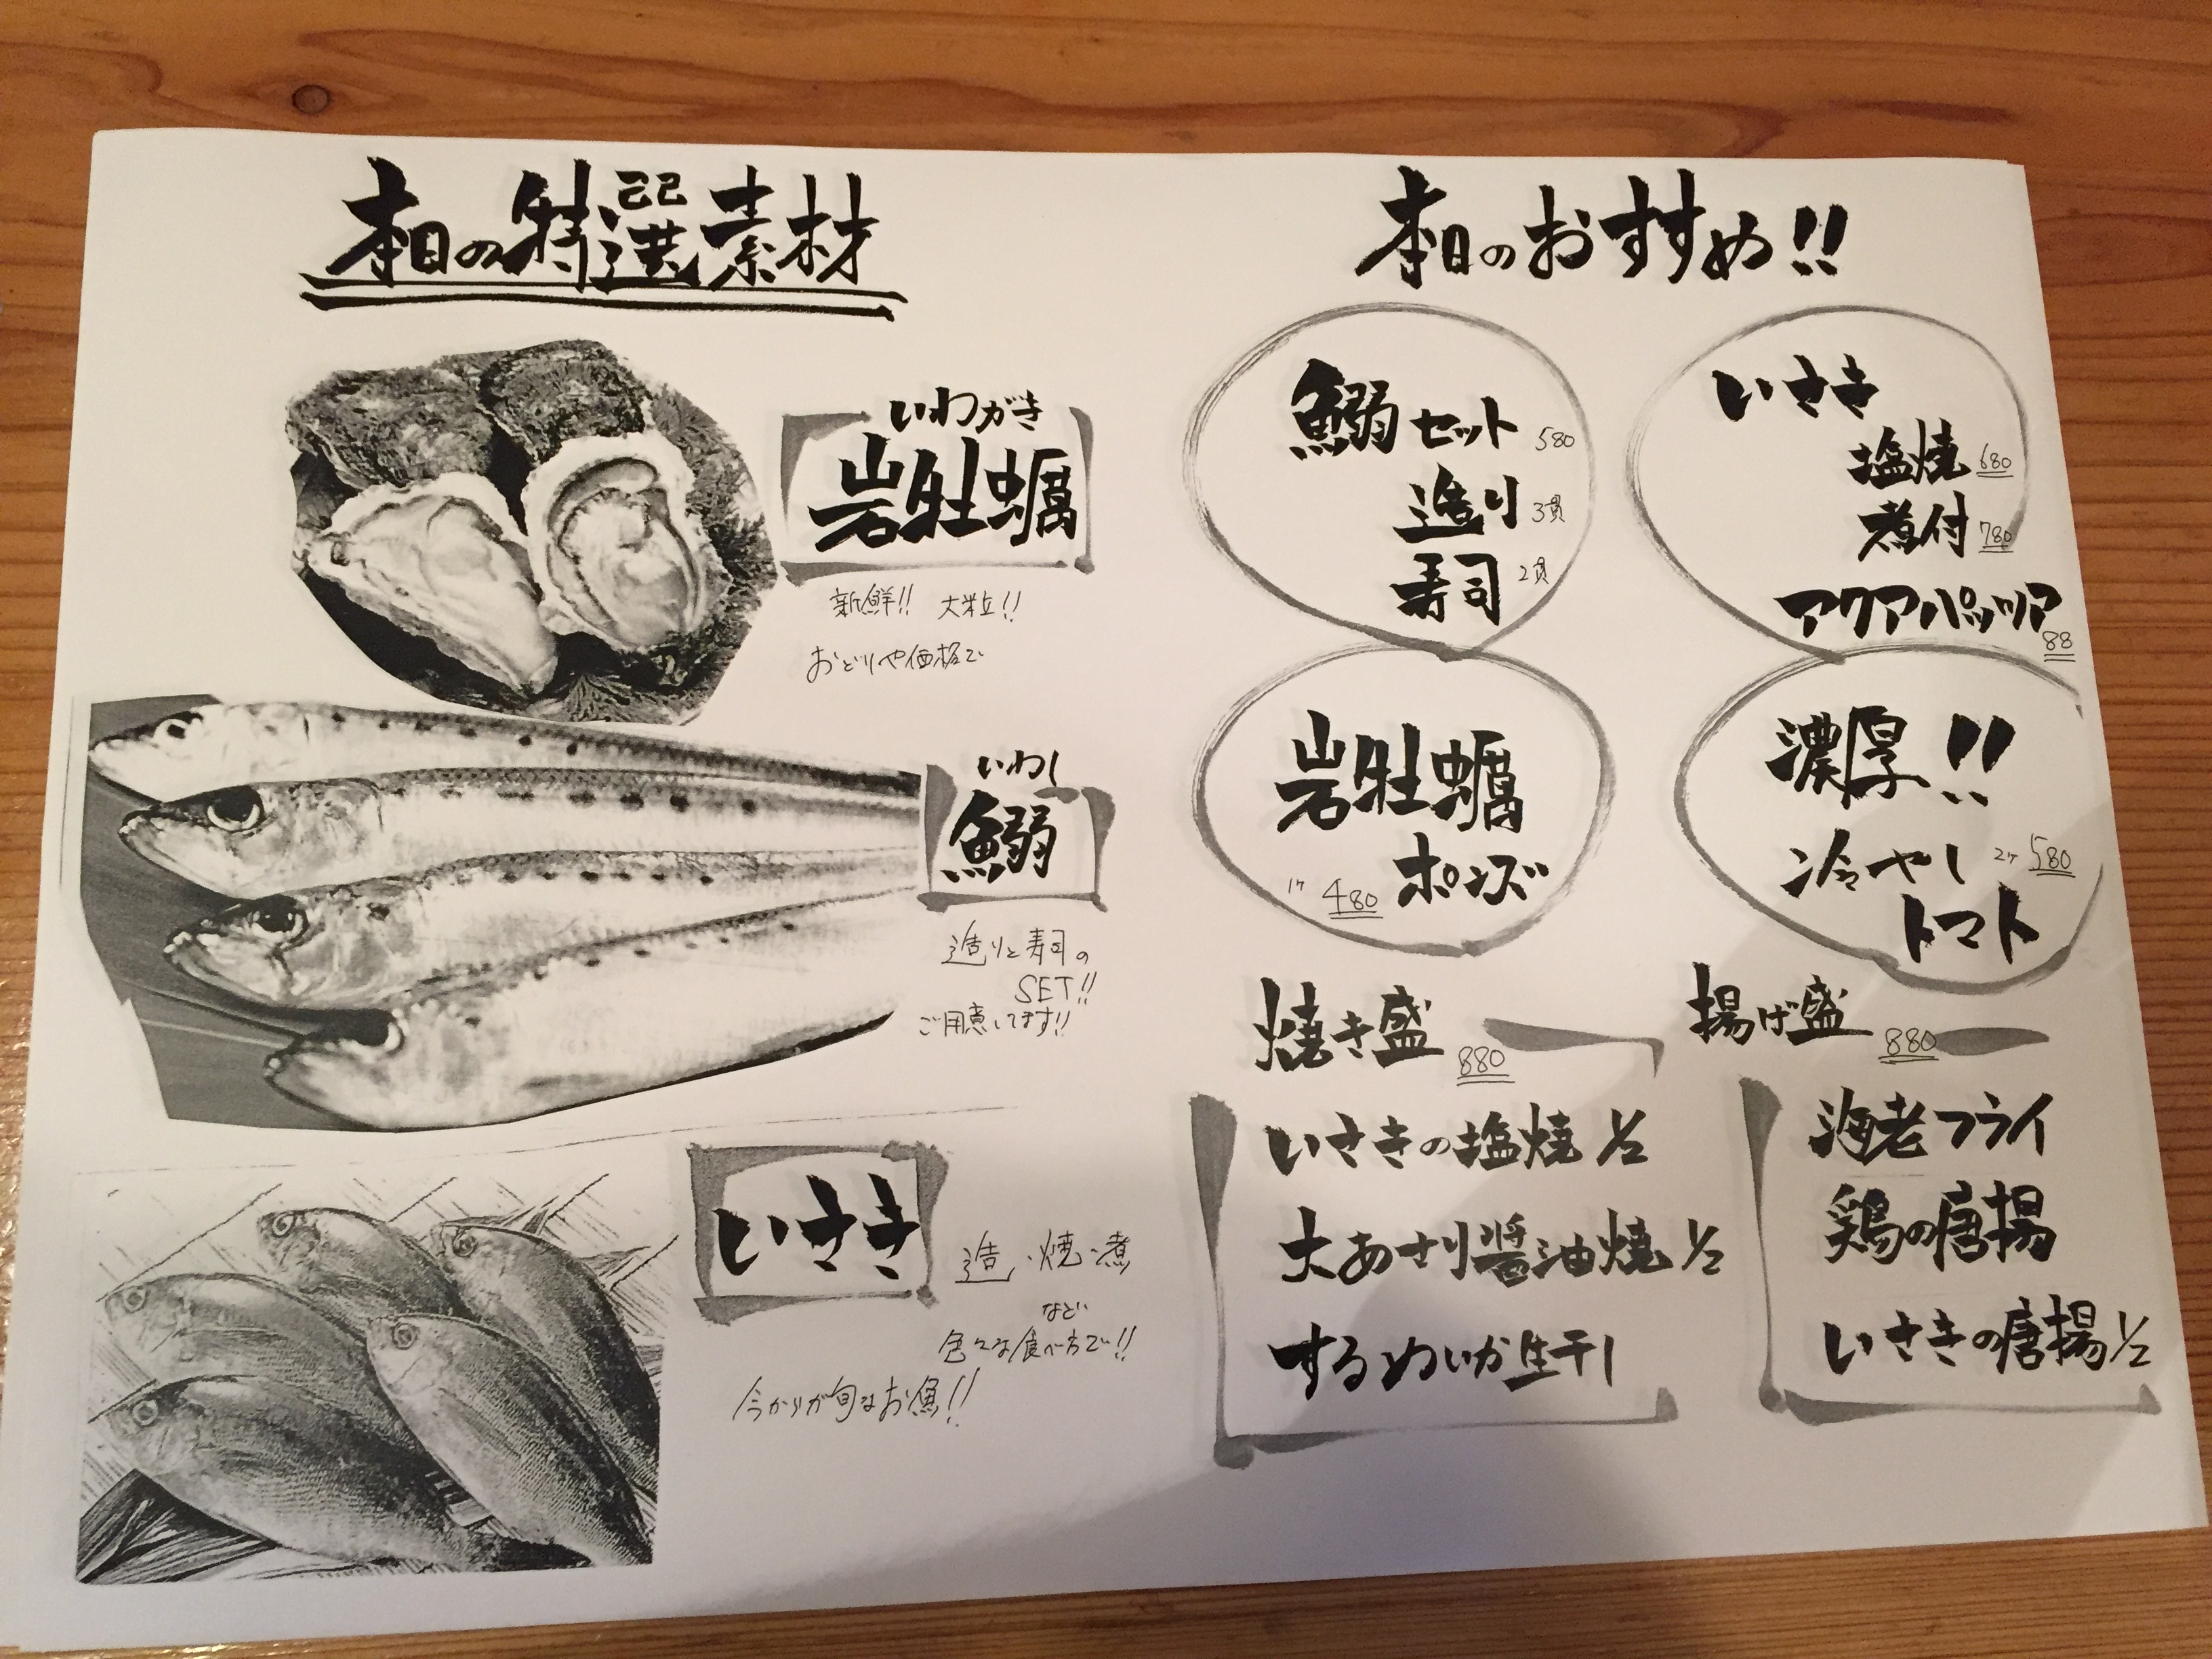 本日の特選素材
いわがき
岩牡蠣
新鮮!! 大粒!!
おどりや価格で
いわし
鰯
造りと寿司の
SET!!
ご用意してます!!
いさき
造・焼・煮
など
色々な食べ方で!!
今からが旬なお魚!!
本日のおすすめ!!
鰯セット 580
造り 3貫
寿司 2貫
いさき
塩焼 680
煮付 780
アクアパッツァ
88
岩牡蠣
ポンズ
1ケ 480
濃厚!!
冷やし 2ケ 580
トマト
焼き盛 880
いさきの塩焼 1/2
大あさり醤油焼 1/2
するめいか生干し
揚げ盛 880
海老フライ
鶏の唐揚
いさきの唐揚 1/2